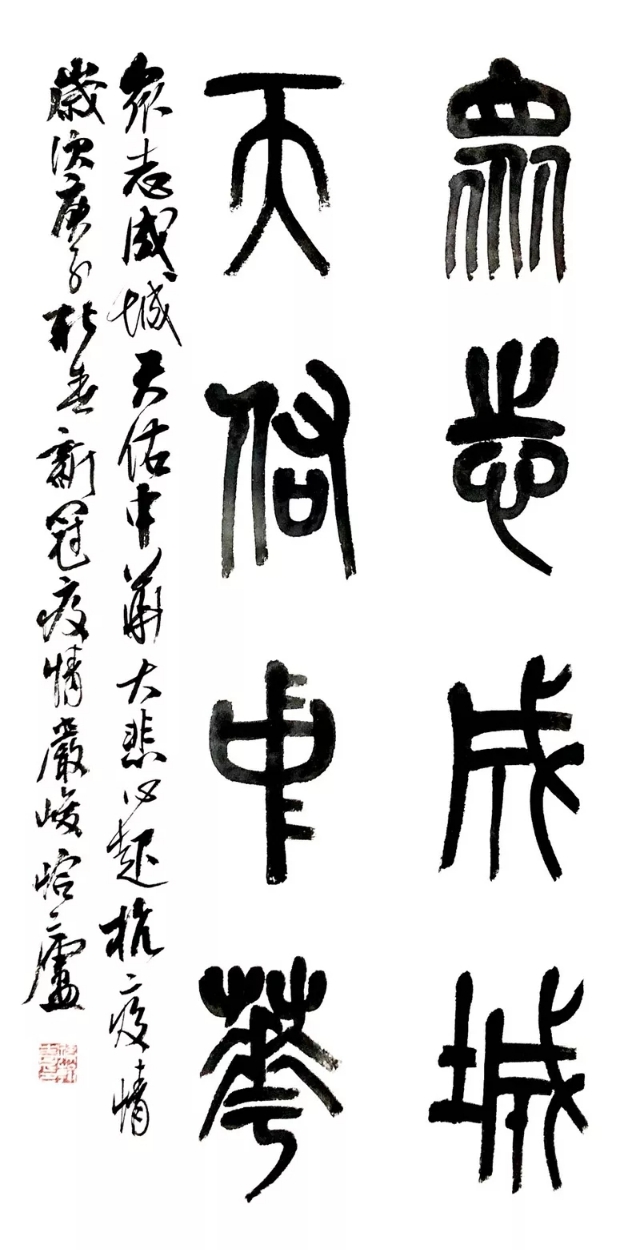 眾志成城
天佑中華
衆志成城天佑中華大悲心起抗疫情
歲次庚子於春新冠疫情嚴峻